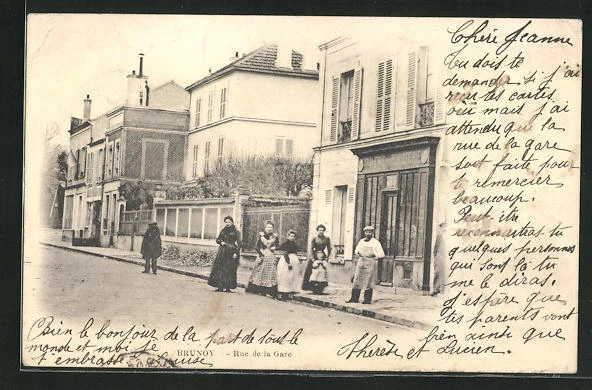 Chère Jeanne
tu dois te
demander si j'ai
reçu tes cartes
oui mais j'ai
attendu que la
rue de la gare
soit faite pour
te remercier
beaucoup.
Peut-être
reconnaitras-tu
quelques personnes
qui sont la tu
me le diras.
J'espère que
tes parents vont
bien ainsi que
Thérèse et Lucien.
Bien le bonjour de la part de tout le
monde et moi je
t'embrasse
BRUNOY - Rue de la Gare